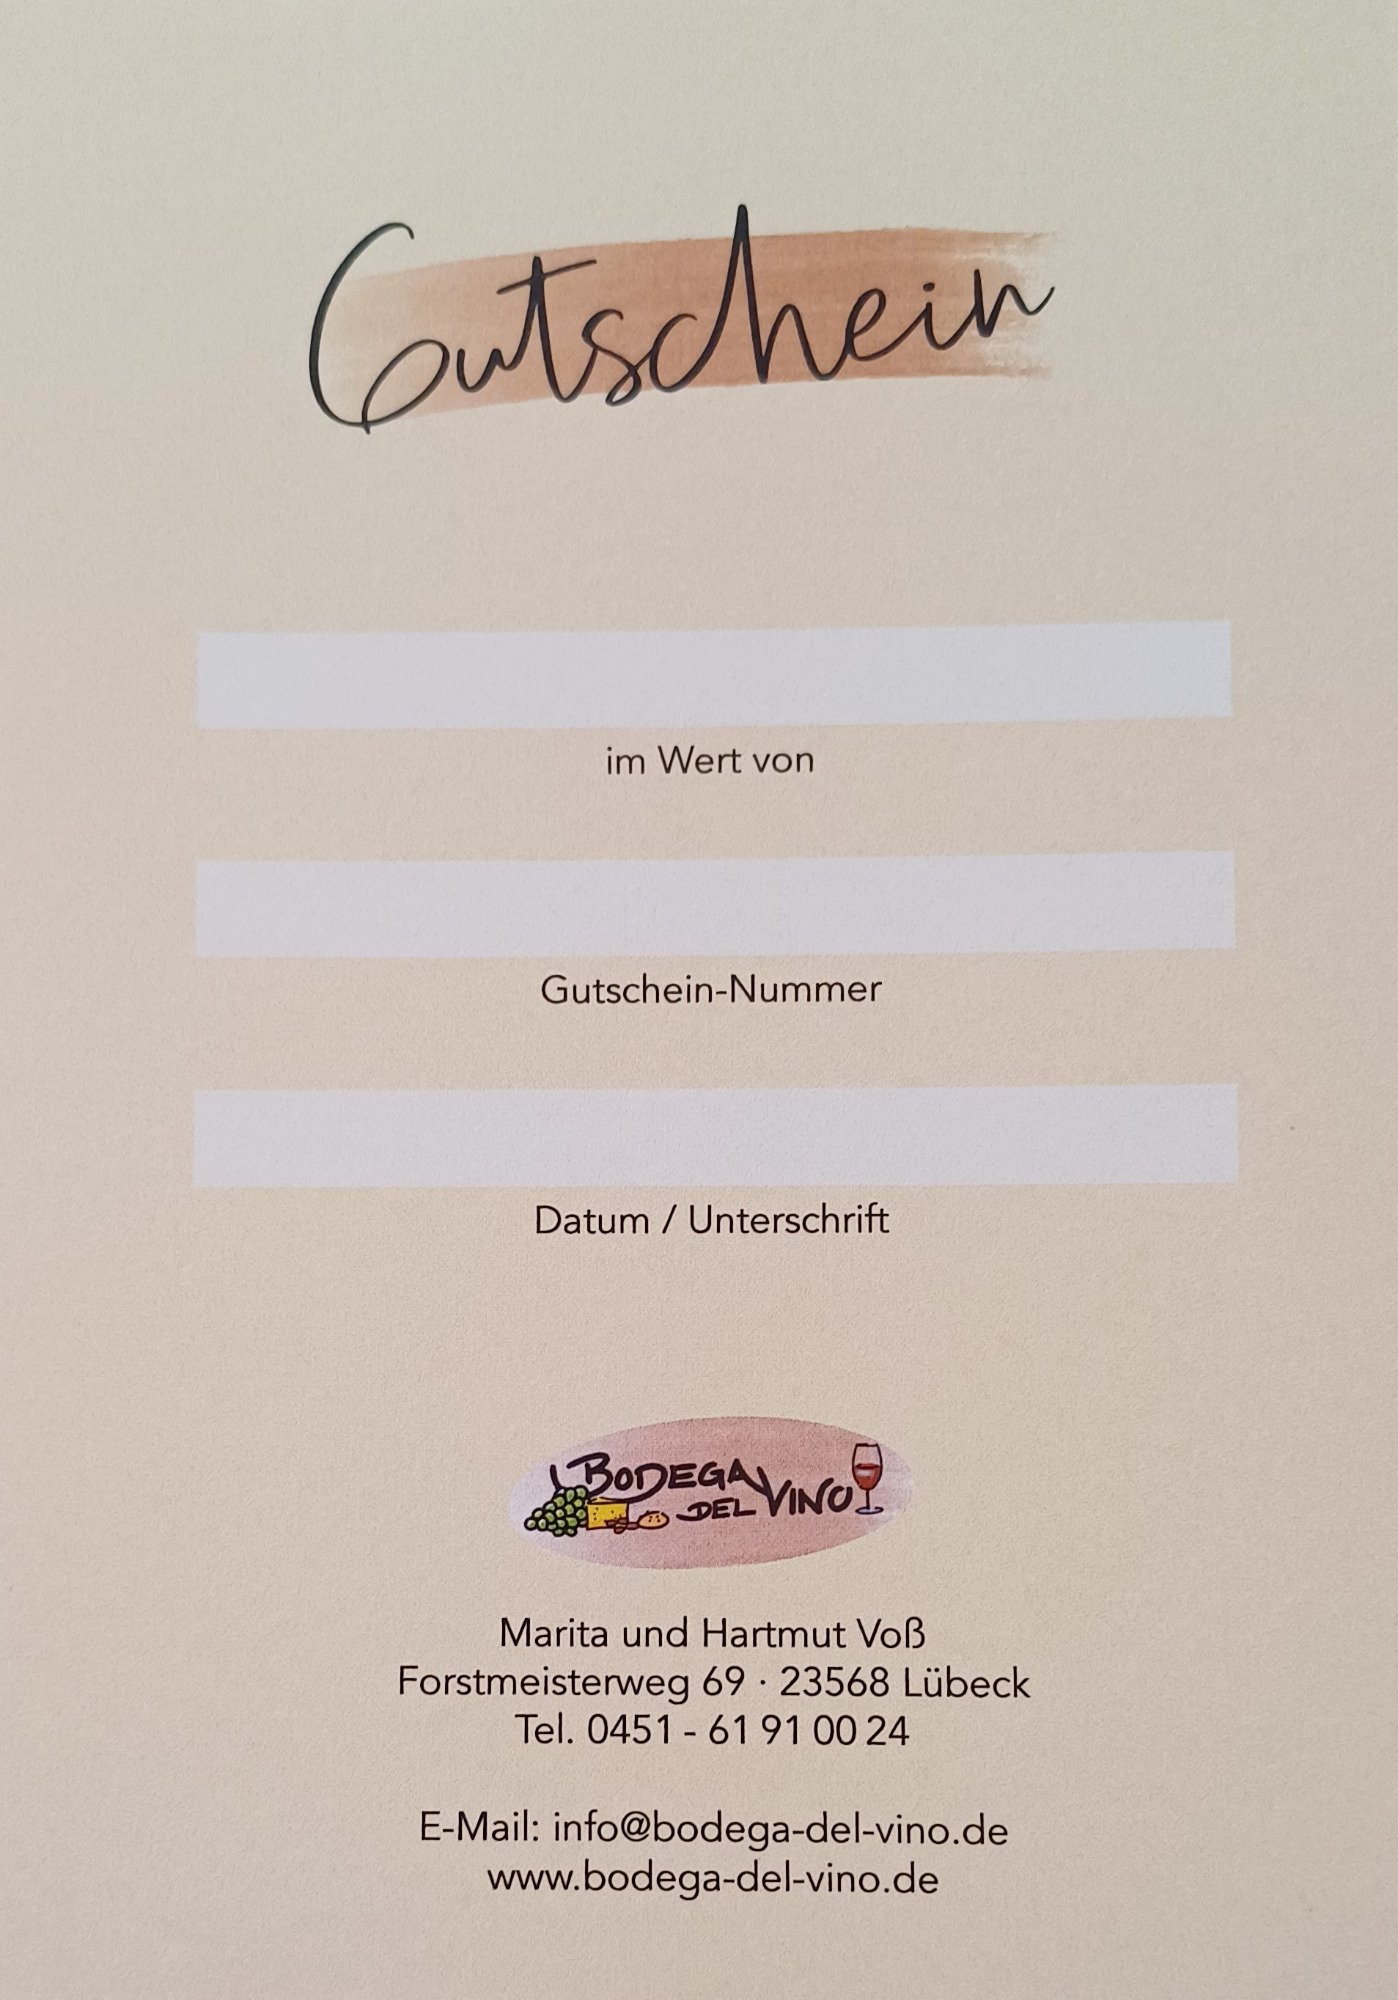 Gutschein
im Wert von
Gutschein-Nummer
Datum / Unterschrift
BODEGA
DEL VINO
Marita und Hartmut Voß
Forstmeisterweg 69 · 23568 Lübeck
Tel. 0451 - 61 91 00 24
E-Mail: info@bodega-del-vino.de
www.bodega-del-vino.de